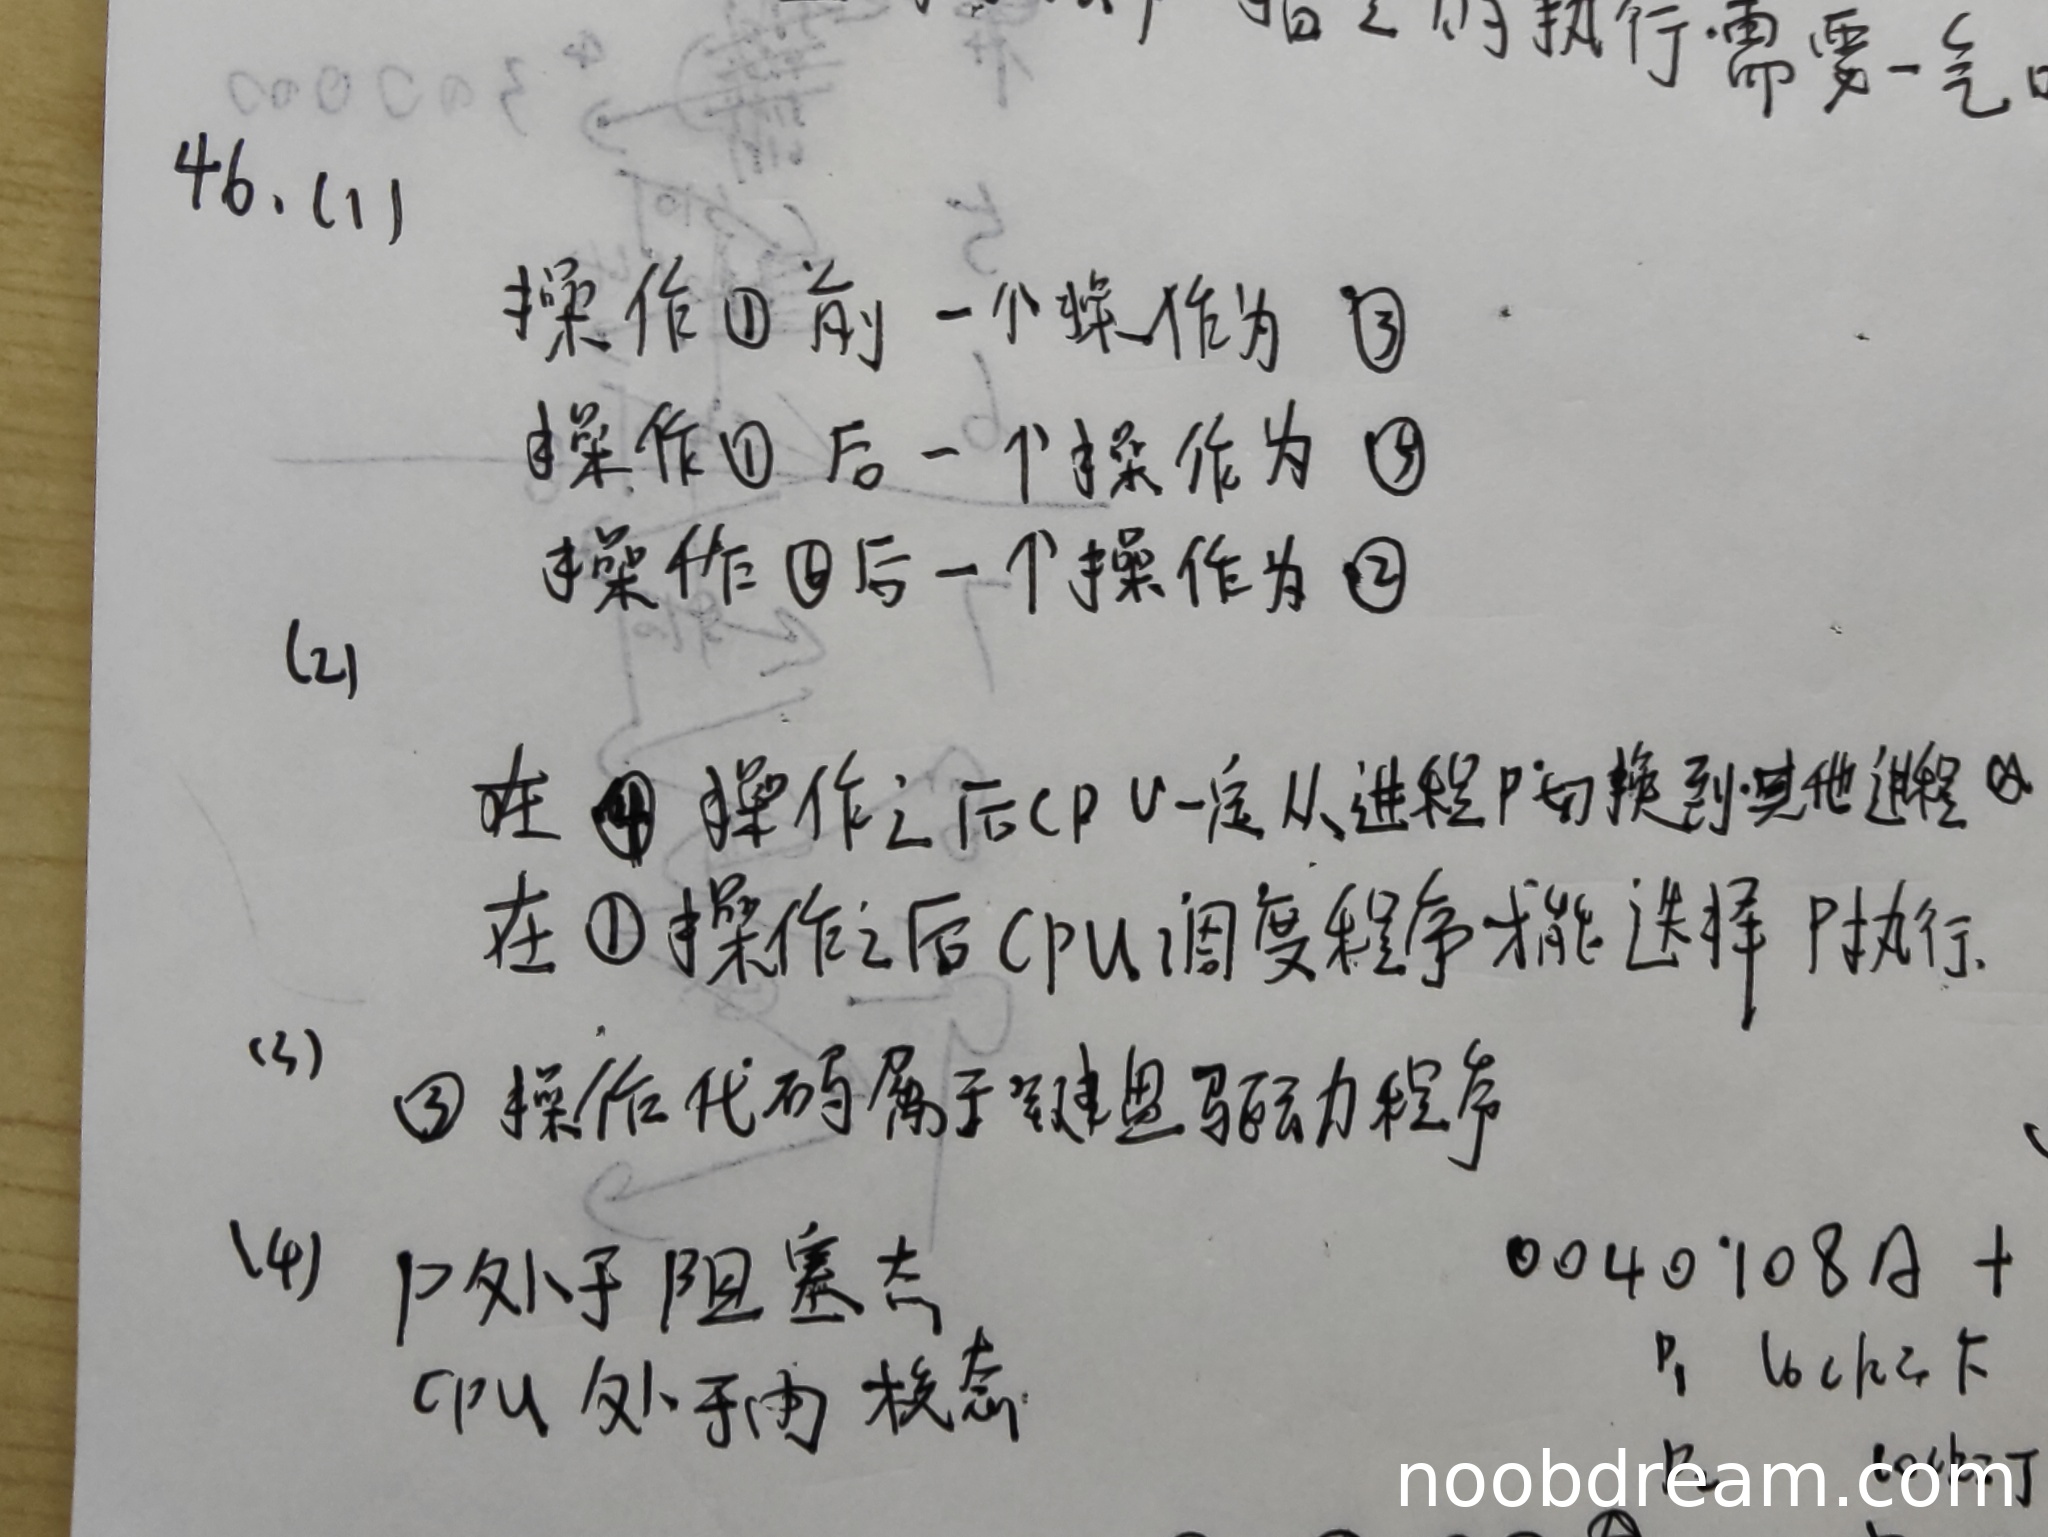 指令的执行需要一气
46.(1)
操作①前一个操作为③
操作①后一个操作为④
操作⑥后一个操作为②
(2)
在④操作之后CPU一定从进程P切换到其他进程
在①操作之后CPU调度程序才能选择P执行.
(3)
③操作代码属于键盘驱动程序
(4) P处于阻塞态
CPU处于内核态.
0040108A +
P1 lock之下
noobdream.com